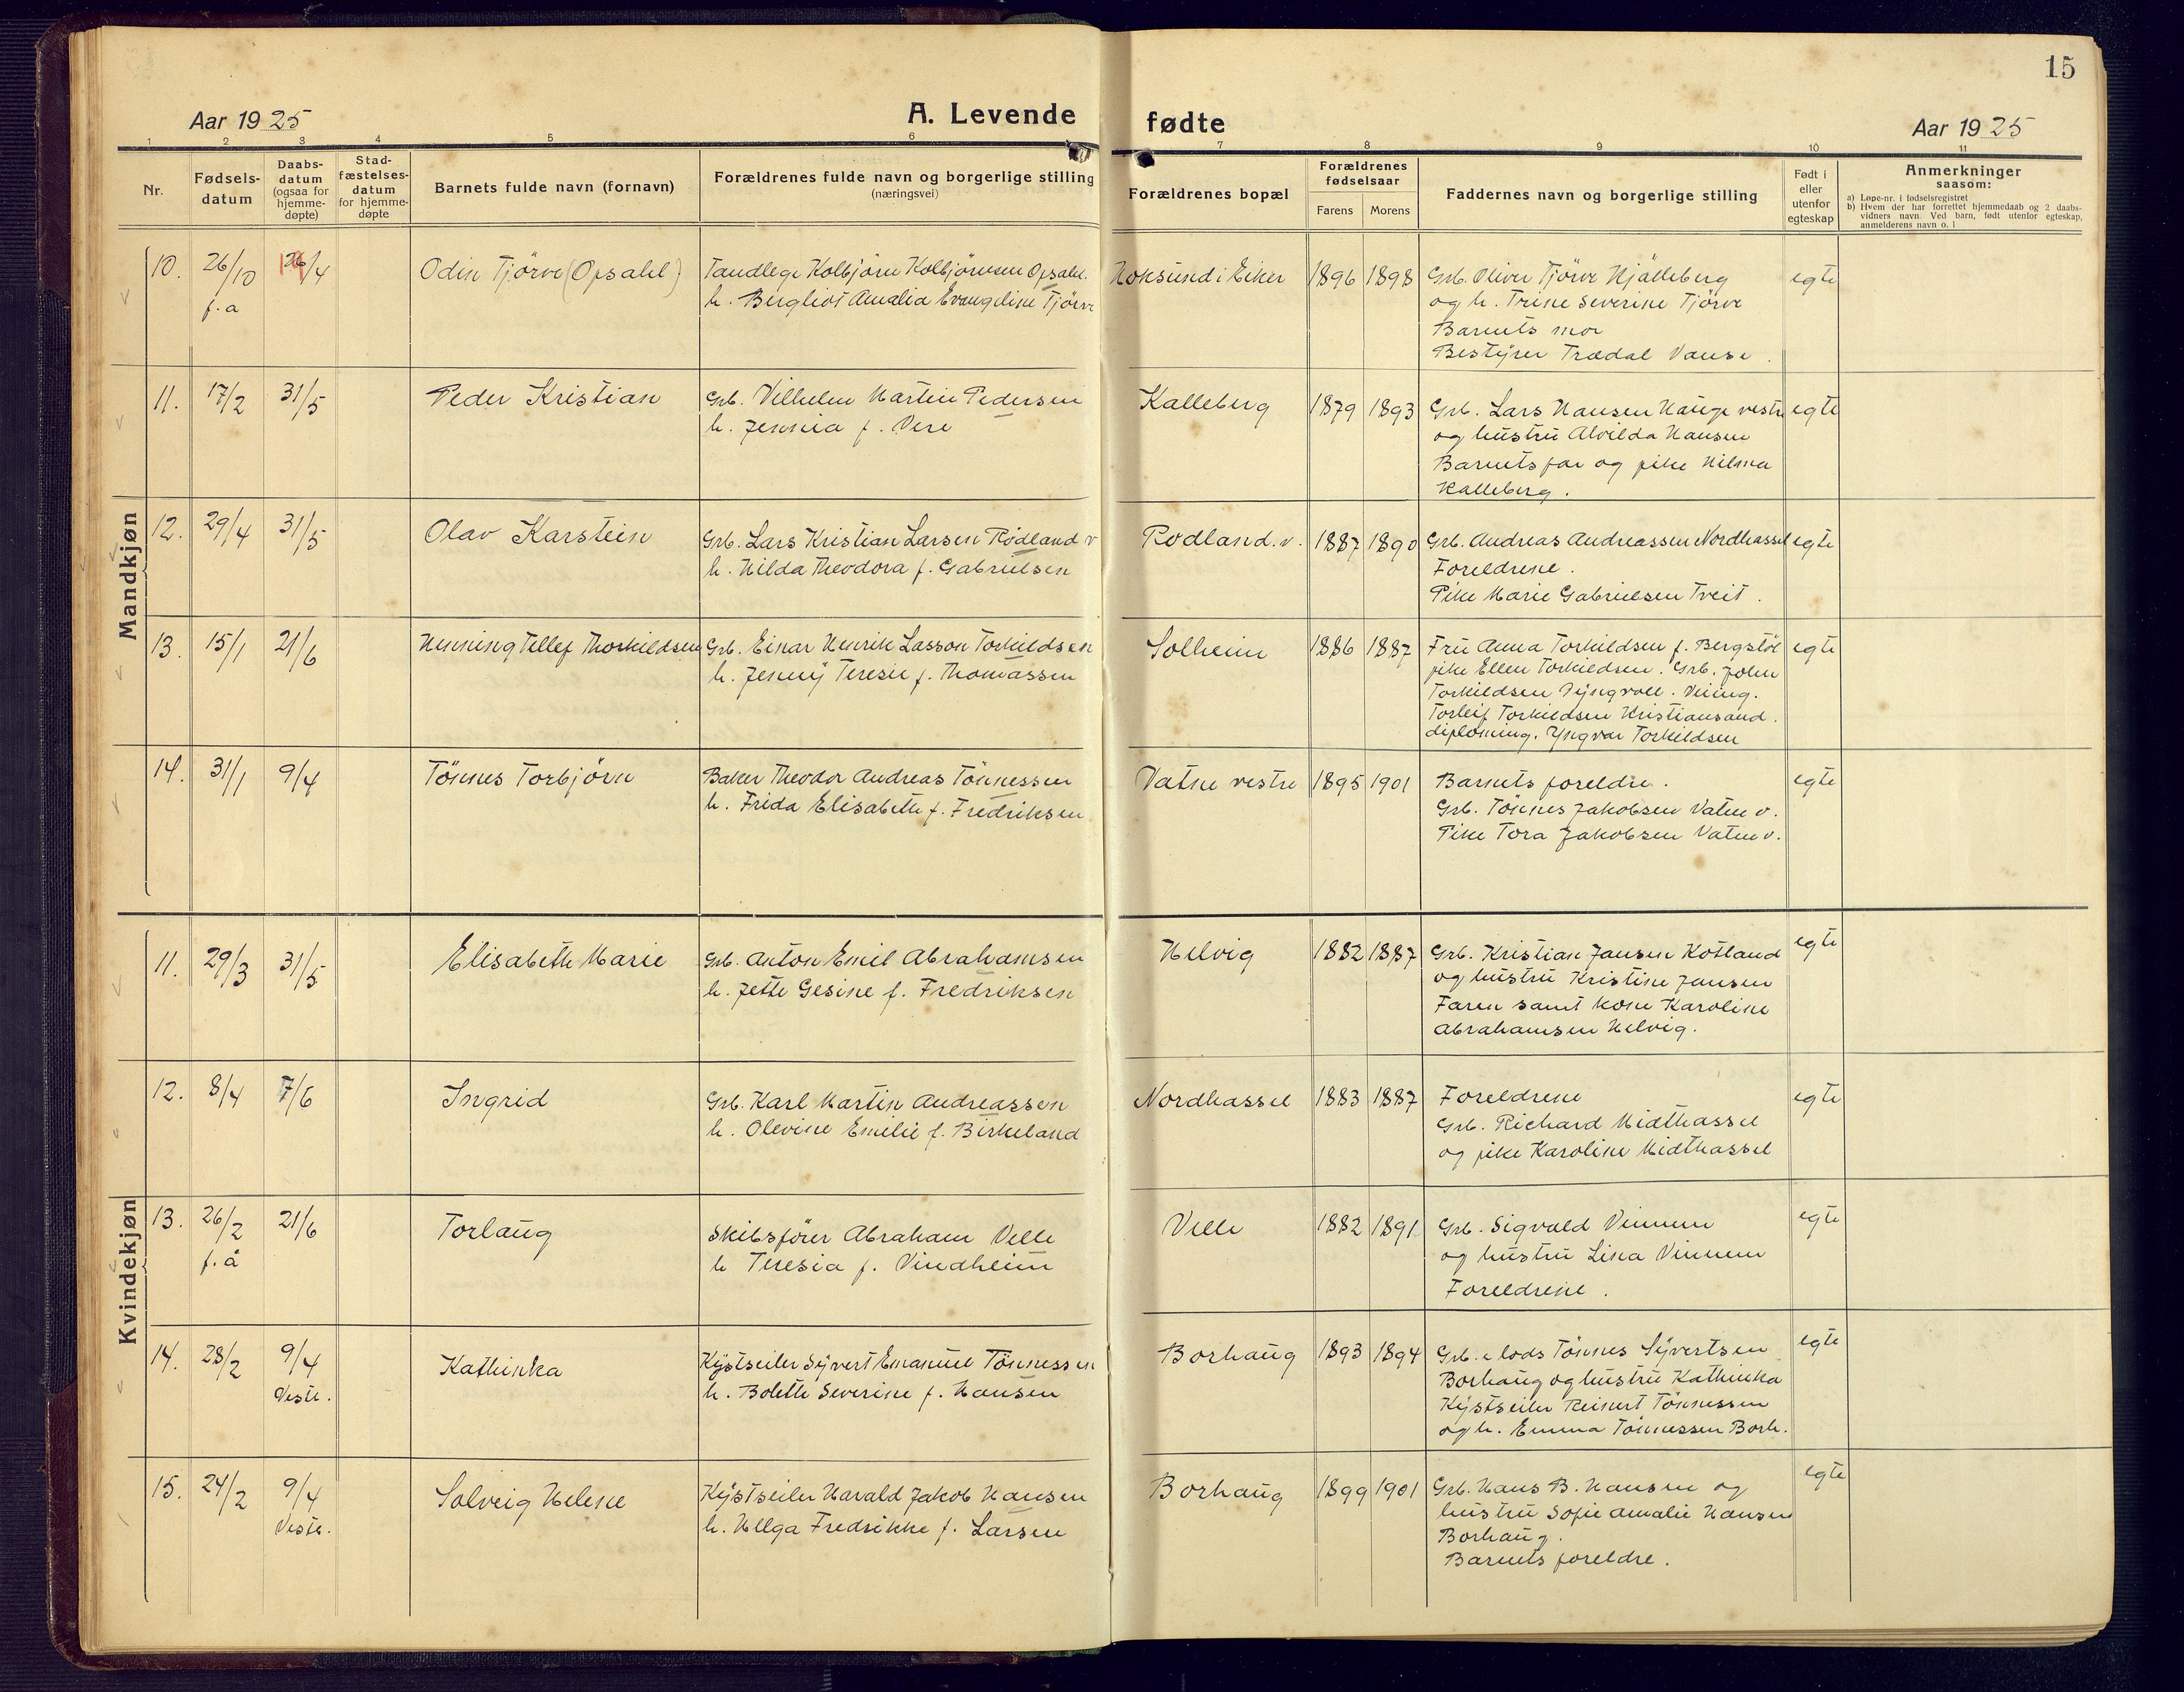 15
Aar 1925
A. Levende fødte
Aar 1925
1 2 3 4 5 6 7 8 9 10 11
Nr.
Fødsels-
datum
Daabs-
datum
(ogsaa for
hjemme-
døpte)
Stad-
fæstelses-
datum
for hjemme-
døpte
Barnets fulde navn (fornavn)
Forældrenes fulde navn og borgerlige stilling
(næringsvei)
Forældrenes bopæl
Forældrenes
fødselsaar
Farens Morens
Faddernes navn og borgerlige stilling
Født i
eller
utenfor
egteskap
Anmerkninger
saasom:
a) Løpe-nr. i fødselsregistret
b) Hvem der har forrettet hjemmedaab og 2 daabs-
vidners navn. Ved barn, født utenfor egteskap,
anmelderens navn o. l
Mandkjøn
10. 26/10 f. a
/4
Odin Tjörve (Opsahl)
Tandlege Kolbjörn Kolbjörnsen Opsahl.
h. Bergliot Amalia Evangeline Tjörve
Hoksund i Eiker
1896 1898
Grb. Oliver Tjörve Hjälleberg
og h. Trine Severine Tjörve
Barnets mor
Bestyrer Trædal Vanse.
egte
11. 17/2 31/5
Peder Kristian
Grb. Vilhelm Martin Pedersen
h. Jennia f. Vere
Kalleberg
1879 1893
Grb. Lars Hansen Hauge vestre
og hustru Alvilda Hansen
Barnets far og pike Hilma
Kalleberg.
egte
12. 29/4 31/5
Olav Karstein
Grb. Lars Kristian Larsen Rödland v
h. Hilda Theodora f. Gabrielsen
Rödland. v.
1887 1890
Grb. Andreas Andreassen Nordhassel
Foreldrene.
Pike Marie Gabrielsen Tveit.
egte
13. 15/1 21/6
Henning Tellef Thorkildsen
Grb. Einar Henrik Lasson Torkildsen
h. Jenny Teresie f. Thomassen
Solheim
1886 1887
Fru Anna Torkildsen f. Bergstöl
pike Ellen Torkildsen. Grb. John
Torkildsen
Torleif Torkildsen Kristiansand.
diploming. Yngvar Torkildsen
egte
14. 31/1 9/4
Tönnes Torbjörn
Baker Theodor Andreas Tönnessen
h. Frida Elisabeth f. Fredriksen
Vatne vestre
1895 1901
Barnets foreldre.
Grb. Tönnes Jakobsen Vatne v.
Pike Tora Jakobsen Vatne v.
egte
Kvindekjøn
11. 29/3 31/5
Elisabeth Marie
Grb. Anton Emil Abrahamsen
h. Jette Gesine f. Fredriksen
Helvig
1882 1887
Grb. Kristian Jansen Kotland
og hustru Kristine Jansen
Faren samt kone Karoline
Abrahamsen Helvig.
egte
12. 8/4 7/6
Ingrid
Grb. Karl Martin Andreassen
h. Olevine Emilie f. Birkeland
Nordhassel
1883 1887
Foreldrene
Grb. Richard Midthassel
og pike Karoline Midthassel
egte
13. 26/2 f. å
21/6
Torlaug
Skibsförer Abraham Velle
h Teresia f. Vindheim
Velle
1882 1891
Grb. Sigvald Vinnem
og hustru Lina Vinnem
Foreldrene.
egte
14. 28/2 9/4
Veste.
Kathinka
Kystseiler Syvert Emanuel Tönnessen
h. Bolette Severine f. Hansen
Borhaug
1893 1894
Grb. e lods Tönnes Syvertsen
Borhaug og hustru Kathinka
Kystseiler Reinert Tönnessen
og h. Emma Tönnessen Borh.
egte
15. 24/2 9/4
Veste.
Solveig Helene
Kystseiler Harald Jakob Hansen
h. Helga Fredrikke f. Larsen
Borhaug
1899 1901
Grb. Hans B. Hansen og
hustru Sofie Amalie Hansen
Borhaug.
Barnets foreldre.
egte